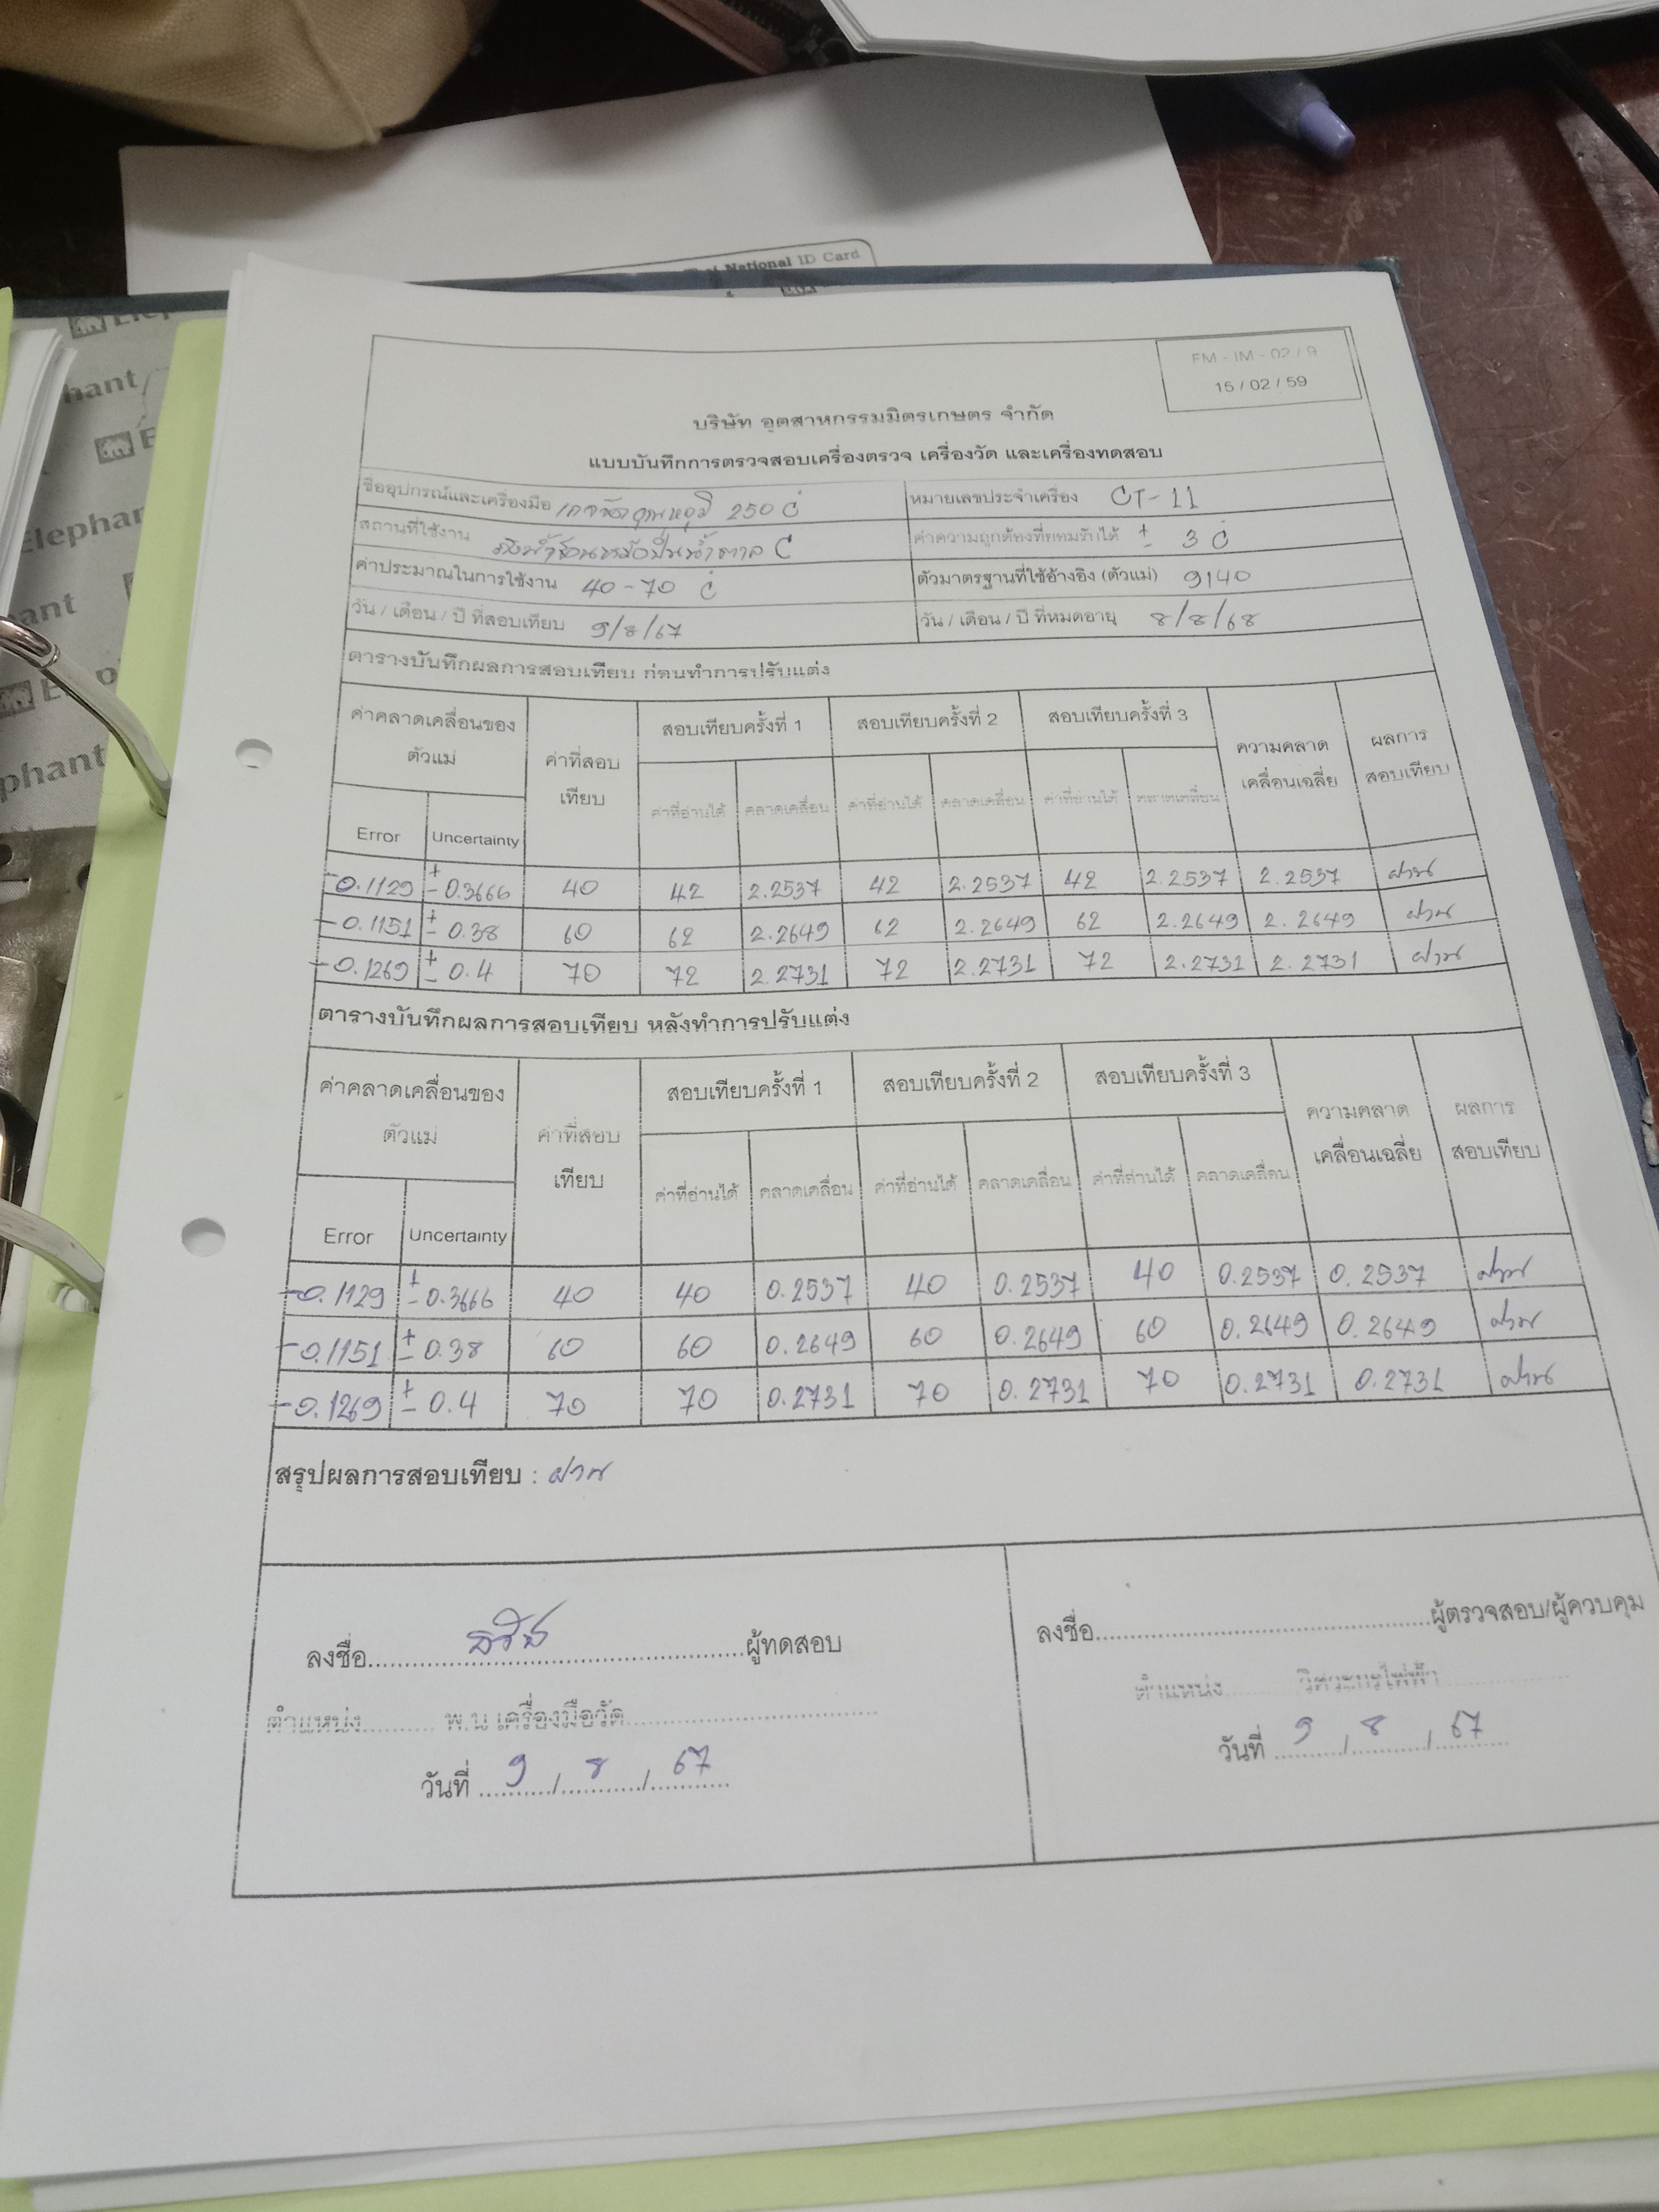 National ID Card
Elephant
FM - IM - 02 / 9
15 / 02 / 59
บริษัท อุตสาหกรรมมิตรเกษตร จำกัด
แบบบันทึกการตรวจสอบเครื่องตรวจ เครื่องวัด และเครื่องทดสอบ
ชื่ออุปกรณ์และเครื่องมือ เกจวัดอุณหภูมิ 250 C หมายเลขประจำเครื่อง CT-11
สถานที่ใช้งาน C ค่าความถูกต้องที่ยอมรับได้ ± 3 C
ค่าประมาณในการใช้งาน 40-70 C ตัวมาตรฐานที่ใช้อ้างอิง (ตัวแม่) 9140
วัน / เดือน / ปี ที่สอบเทียบ 9/8/67 วัน / เดือน / ปี ที่หมดอายุ 8/8/68
ตารางบันทึกผลการสอบเทียบ ก่อนทำการปรับแต่ง
ค่าคลาดเคลื่อนของตัวแม่ ค่าที่สอบเทียบ สอบเทียบครั้งที่ 1 สอบเทียบครั้งที่ 2 สอบเทียบครั้งที่ 3 ความคลาดเคลื่อนเฉลี่ย ผลการสอบเทียบ
Error Uncertainty ค่าที่อ่านได้ คลาดเคลื่อน ค่าที่อ่านได้ คลาดเคลื่อน ค่าที่อ่านได้ คลาดเคลื่อน
-0.1129 ± 0.3666 40 42 2.2537 42 2.2537 42 2.2537 2.2537 ผ่าน
-0.1151 ± 0.38 60 62 2.2649 62 2.2649 62 2.2649 2.2649 ผ่าน
-0.1269 ± 0.4 70 72 2.2731 72 2.2731 72 2.2731 2.2731 ผ่าน
ตารางบันทึกผลการสอบเทียบ หลังทำการปรับแต่ง
ค่าคลาดเคลื่อนของตัวแม่ ค่าที่สอบเทียบ สอบเทียบครั้งที่ 1 สอบเทียบครั้งที่ 2 สอบเทียบครั้งที่ 3 ความคลาดเคลื่อนเฉลี่ย ผลการสอบเทียบ
Error Uncertainty ค่าที่อ่านได้ คลาดเคลื่อน ค่าที่อ่านได้ คลาดเคลื่อน ค่าที่อ่านได้ คลาดเคลื่อน
-0.1129 ± 0.3666 40 40 0.2537 40 0.2537 40 0.2537 0.2537 ผ่าน
-0.1151 ± 0.38 60 60 0.2649 60 0.2649 60 0.2649 0.2649 ผ่าน
-0.1269 ± 0.4 70 70 0.2731 70 0.2731 70 0.2731 0.2731 ผ่าน
สรุปผลการสอบเทียบ : ผ่าน
ลงชื่อ ผู้ทดสอบ ลงชื่อ ผู้ตรวจสอบ/ผู้ควบคุม
ตำแหน่ง พ.น เครื่องมือวัด ตำแหน่ง วิศวะกรไฟฟ้า
วันที่ 9 / 8 / 67 วันที่ 9 / 8 / 67